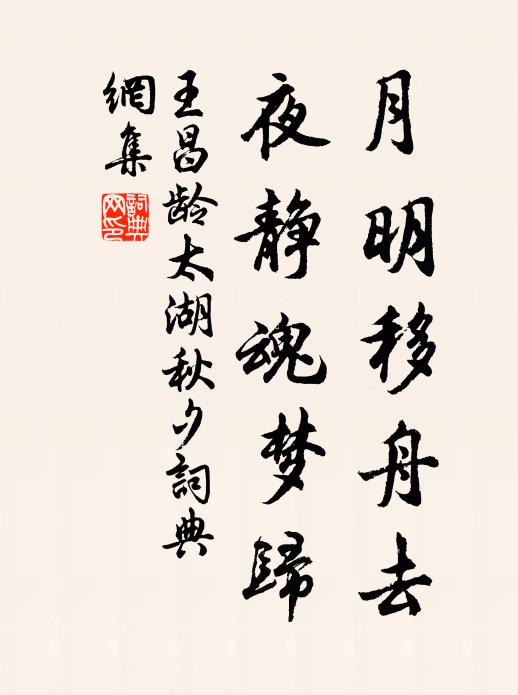 月明移舟去
夜静魂梦歸
王昌龄太湖秋夕詞典
網集
詞典网印